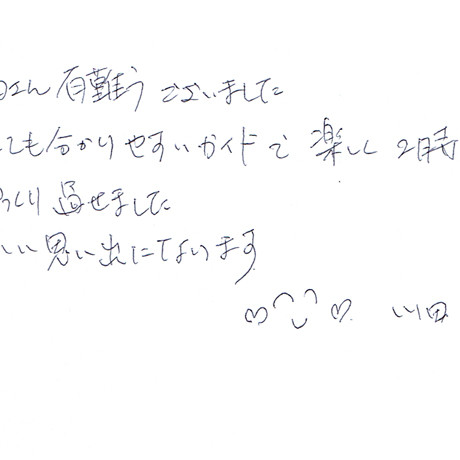 さん有難うございました
ても分かりやすいガイドで楽しく2時
っくり過せました
いい思い出になります
♡ ♡ 川田